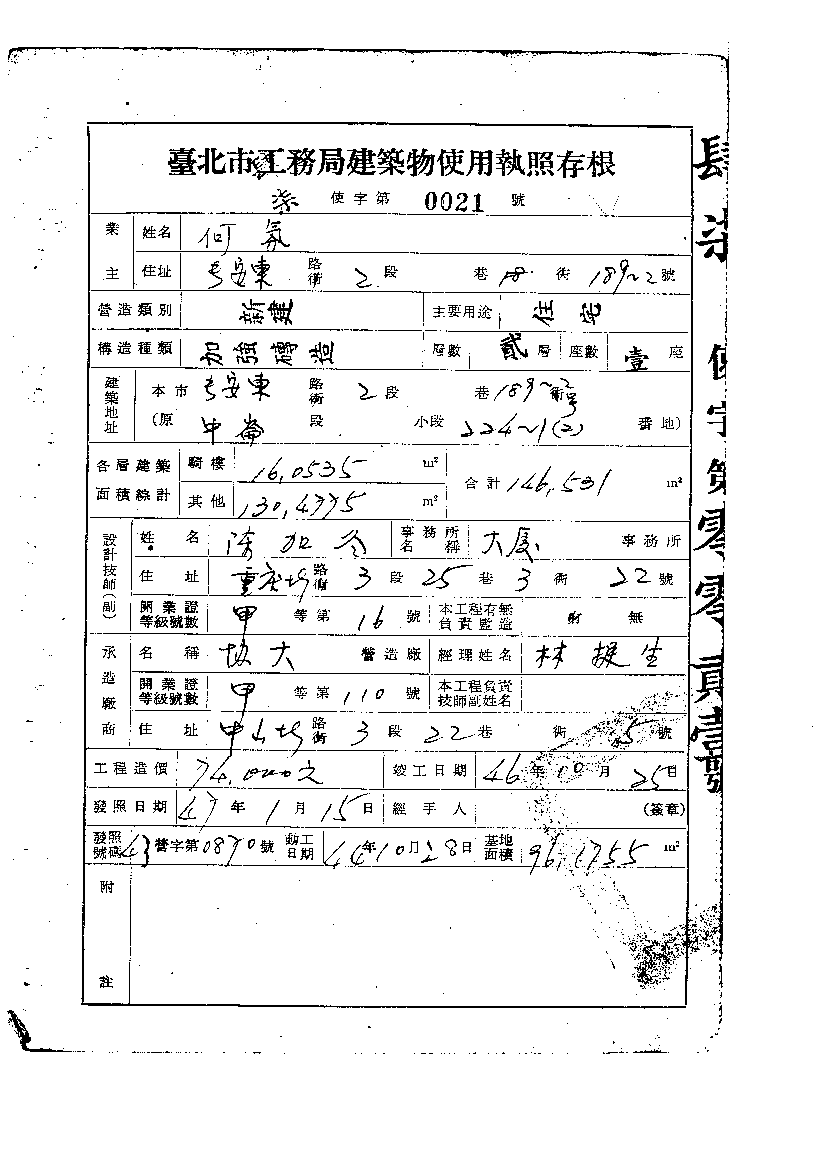 臺北市工務局建築物使用執照存根
柒 使字第 0021 號
業主 姓名 何氛
住址 長安東 路街 2 段 巷 街 189~2 號
營造類別 新建 主要用途 住宅
構造種類 加強磚造 層數 貳 層 座數 壹 座
建築地址 本市 長安東 路街 2 段 巷 189~2 街號
(原 中崙 段 小段 224~1(2) 番地)
各層建築面積綜計 騎樓 16.0535 m² 合計 146.531 m²
其他 130.4775 m²
設計技師(副) 姓名 陳加今 事務所名稱 大廈 事務所
住址 重慶北 路街 3 段 25 巷 3 街 22 號
開業證等級號數 甲 等第 16 號 本工程有無負責監造 有 無
承造廠商 名稱 協大 營造廠 經理姓名 林振生
開業證等級號數 甲 等第 110 號 本工程負責技師副姓名
住址 中山北 路街 3 段 22 巷 街 5 號
工程造價 74,000元 竣工日期 46年10月25日
發照日期 47年1月15日 經手人 (簽章)
發照號碼 43營字第0870號 動工日期 44年10月28日 基地面積 96.1755 m²
附註
肆柒 使字第零零貳壹號